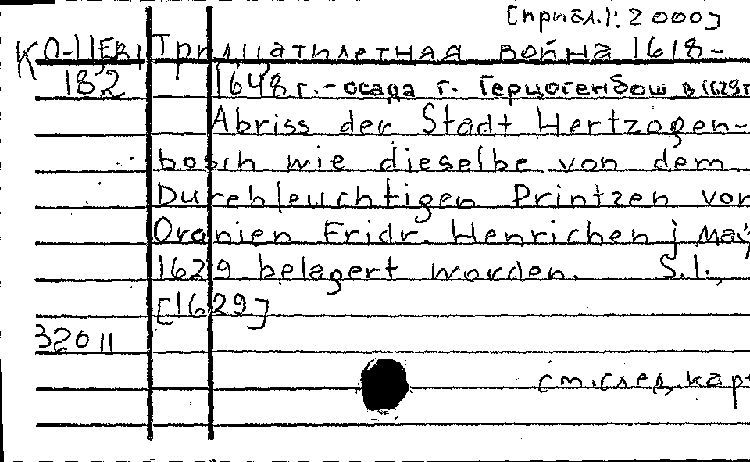 [прибл. 1: 2 000]
К 0-ЦЕВ/ Тридцатилетная война 1618-
182 1648 г. - осада г. Герцогенбош в 1629 г
Abriss der Stadt Hertzogen-
bosch wie dieselbe von dem
Durchleuchtigen Printzen von
Oranien Fridr. Henrichen j may
1629 belagert worden. S.l.,
[1629]
32011
см. след. карт